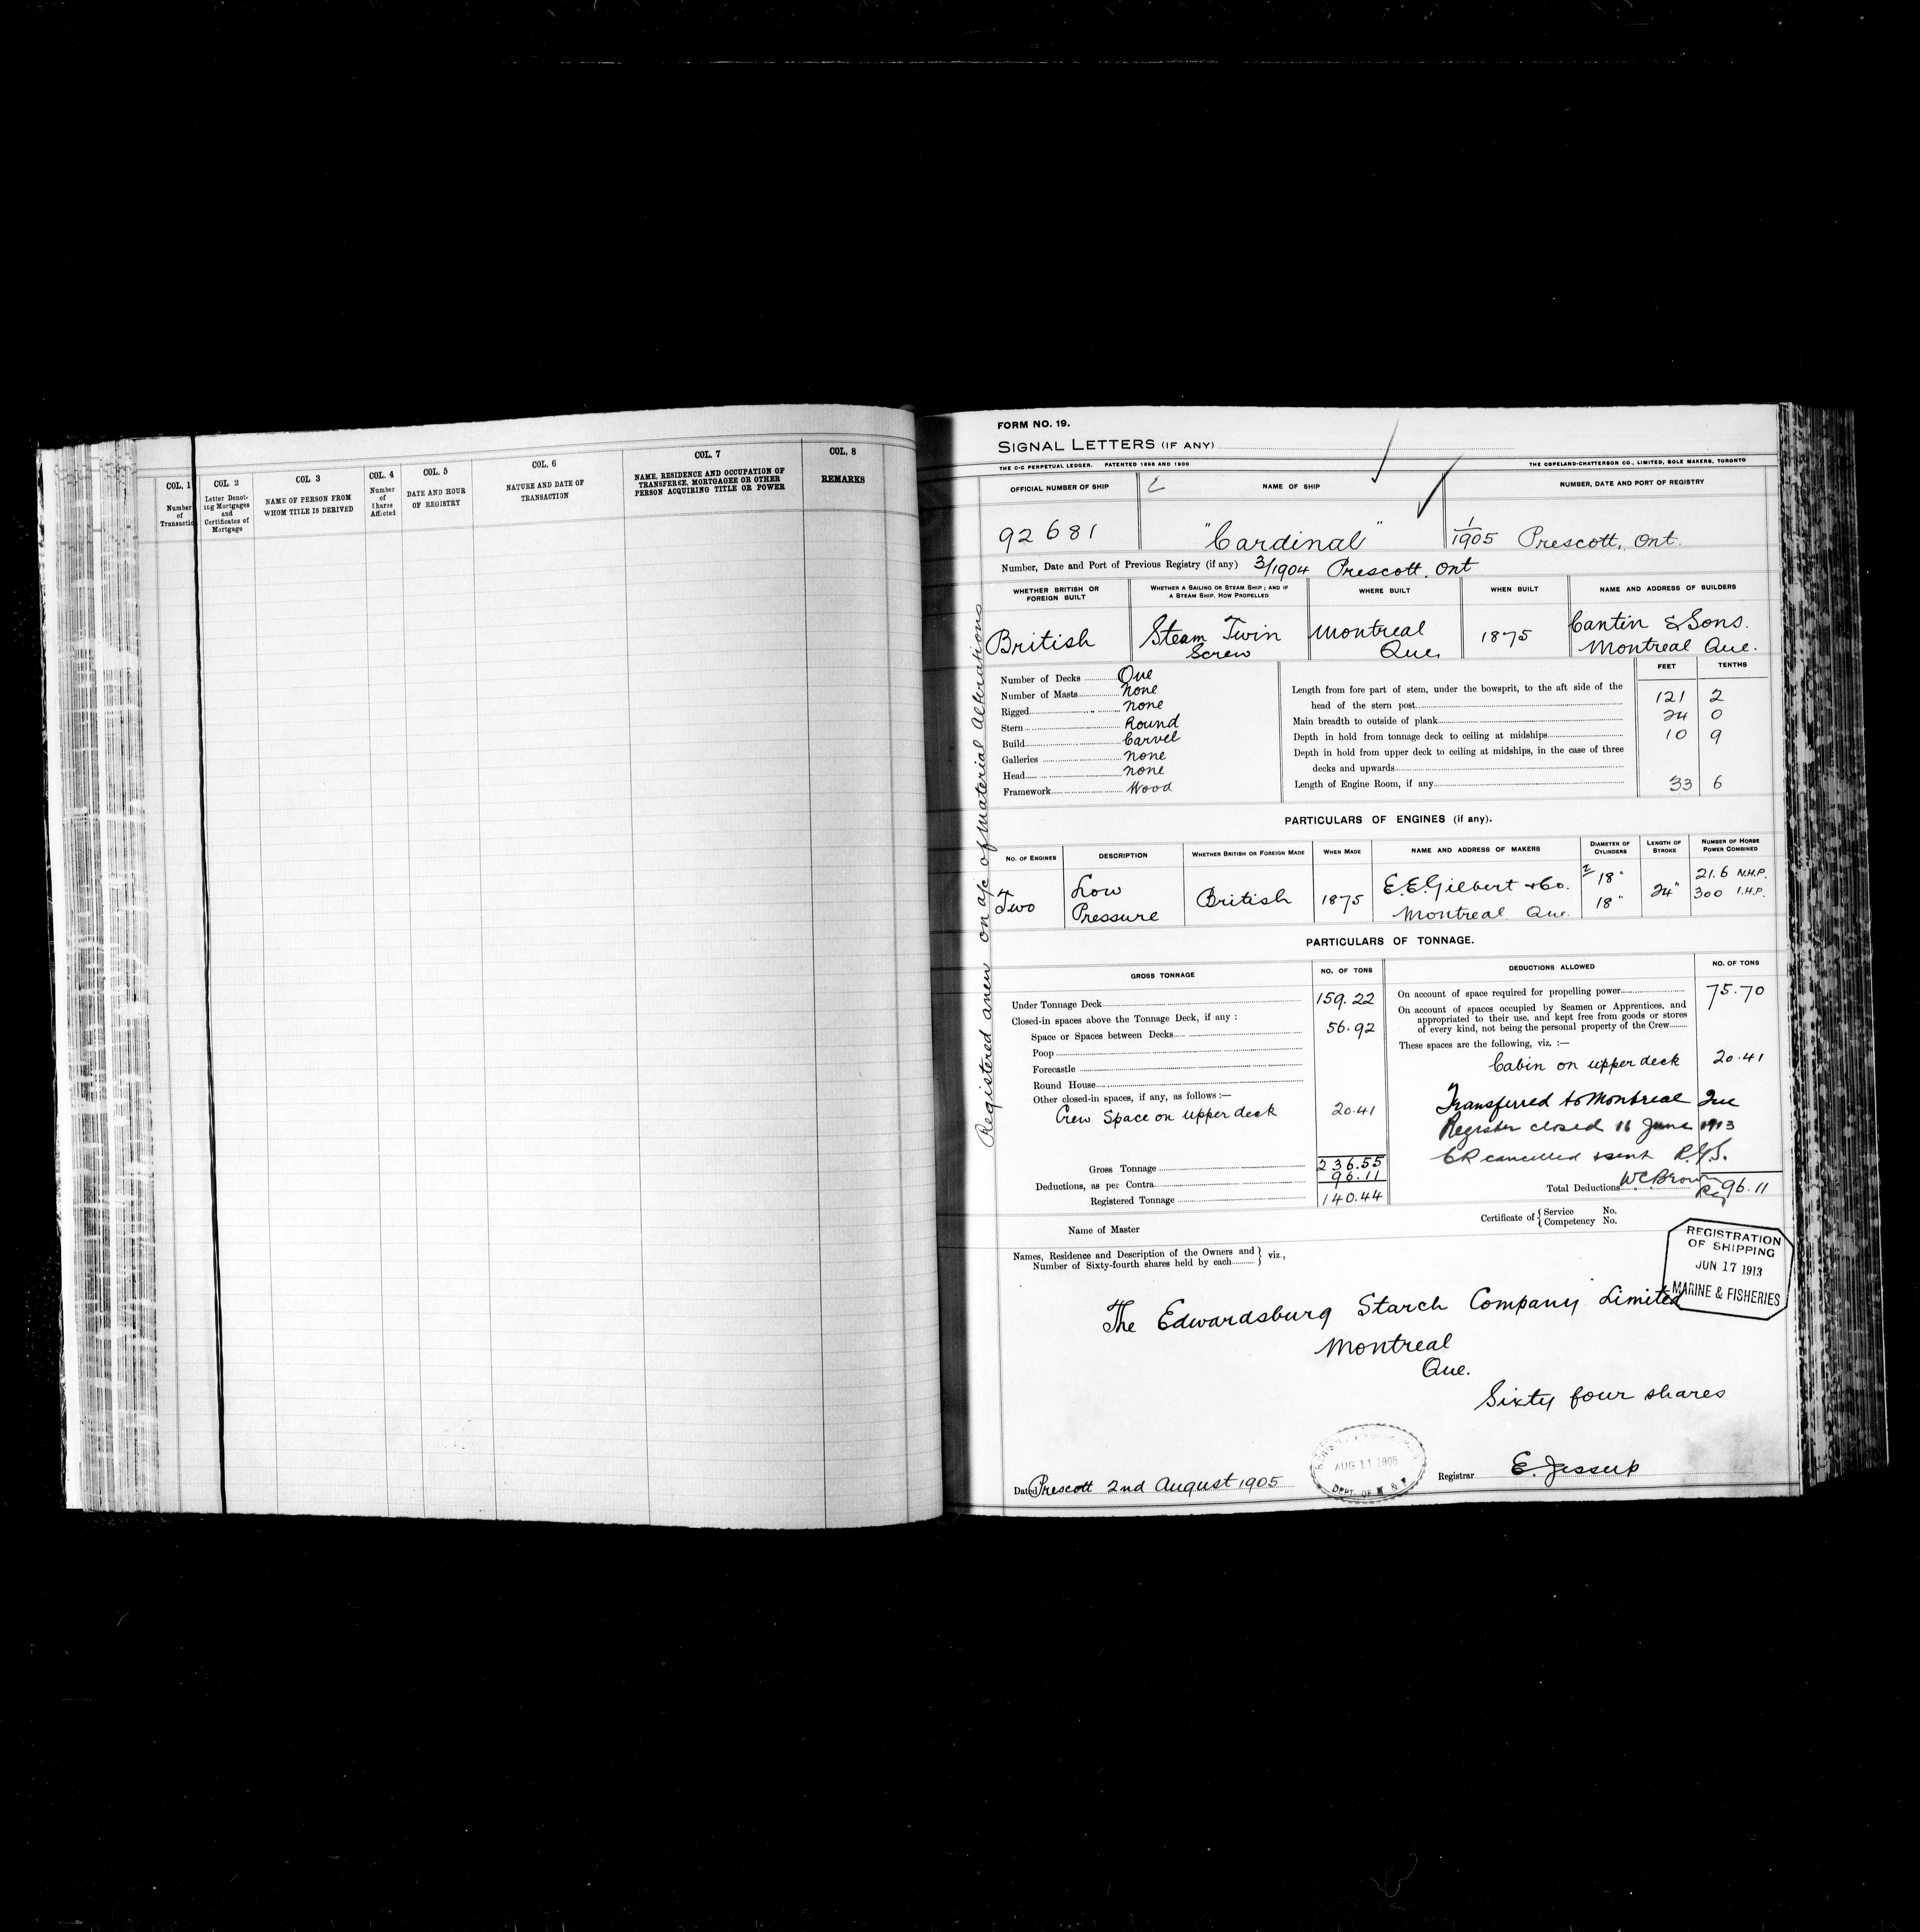 COL. 1
Number
of
Transactio
COL. 2
Letter Denot-
ing Mortgages
and
Certificates of
Mortgage
COL. 3
NAME OF PERSON FROM
WHOM TITLE IS DERIVED
COL. 4
Number
of
Shares
Affected
COL. 5
DATE AND HOUR
OF REGISTRY
COL. 6
NATURE AND DATE OF
TRANSACTION
COL. 7
NAME, RESIDENCE AND OCCUPATION OF
TRANSFEREE, MORTGAGEE OR OTHER
PERSON ACQUIRING TITLE OR POWER
COL. 8
REMARKS
FORM NO. 19.
SIGNAL LETTERS (IF ANY)
THE C-C PERPETUAL LEDGER. PATENTED 1898 AND 1900
THE COPELAND-CHATTERSON CO., LIMITED, SOLE MAKERS, TORONTO
OFFICIAL NUMBER OF SHIP
NAME OF SHIP
NUMBER, DATE AND PORT OF REGISTRY
92681
"Cardinal"
1/1905 Prescott, Ont.
Number, Date and Port of Previous Registry (if any) 3/1904 Prescott. Ont
WHETHER BRITISH OR
FOREIGN BUILT
WHETHER A SAILING OR STEAM SHIP; AND IF
A STEAM SHIP, HOW PROPELLED
WHERE BUILT
WHEN BUILT
NAME AND ADDRESS OF BUILDERS
British
Steam Twin
Screw
Montreal
Que.
1875
Cantin & Sons.
Montreal Que.
Number of Decks One
Number of Masts none
Rigged none
Stern Round
Build Carvel
Galleries none
Head none
Framework Wood
FEET TENTHS
Length from fore part of stem, under the bowsprit, to the aft side of the
head of the stern post 121 2
Main breadth to outside of plank 24 0
Depth in hold from tonnage deck to ceiling at midships 10 9
Depth in hold from upper deck to ceiling at midships, in the case of three
decks and upwards
Length of Engine Room, if any 33 6
PARTICULARS OF ENGINES (if any).
NO. OF ENGINES
DESCRIPTION
WHETHER BRITISH OR FOREIGN MADE
WHEN MADE
NAME AND ADDRESS OF MAKERS
DIAMETER OF
CYLINDERS
LENGTH OF
STROKE
NUMBER OF HORSE
POWER COMBINED
Two
Low
Pressure
British
1875
E.E. Gilbert & Co.
Montreal Que.
2 18"
18"
24"
21.6 N.H.P.
300 I.H.P.
PARTICULARS OF TONNAGE.
GROSS TONNAGE
NO. OF TONS
Under Tonnage Deck 159.22
Closed-in spaces above the Tonnage Deck, if any :
Space or Spaces between Decks 56.92
Poop
Forecastle
Round House
Other closed-in spaces, if any, as follows :—
Crew Space on upper deck 20.41
Gross Tonnage 236.55
Deductions, as per Contra 96.11
Registered Tonnage 140.44
DEDUCTIONS ALLOWED
NO. OF TONS
On account of space required for propelling power 75.70
On account of spaces occupied by Seamen or Apprentices, and
appropriated to their use, and kept free from goods or stores
of every kind, not being the personal property of the Crew
These spaces are the following, viz. :—
Cabin on upper deck 20.41
Transferred to Montreal Que
Register closed 16 June 1913
CR cancelled & sent R.G.S.
W.C. Brown
Reg
Total Deductions 96.11
Name of Master
Certificate of { Service No.
Competency No.
Names, Residence and Description of the Owners and } viz.,
Number of Sixty-fourth shares held by each
REGISTRATION
OF SHIPPING
JUN 17 1913
MARINE & FISHERIES
The Edwardsburg Starch Company Limited
Montreal
Que.
Sixty four shares
AUG 11 1905
DEPT. OF M & F
Dated Prescott 2nd August 1905
Registrar E. Jessup
Registered anew on a/c of material Alterations